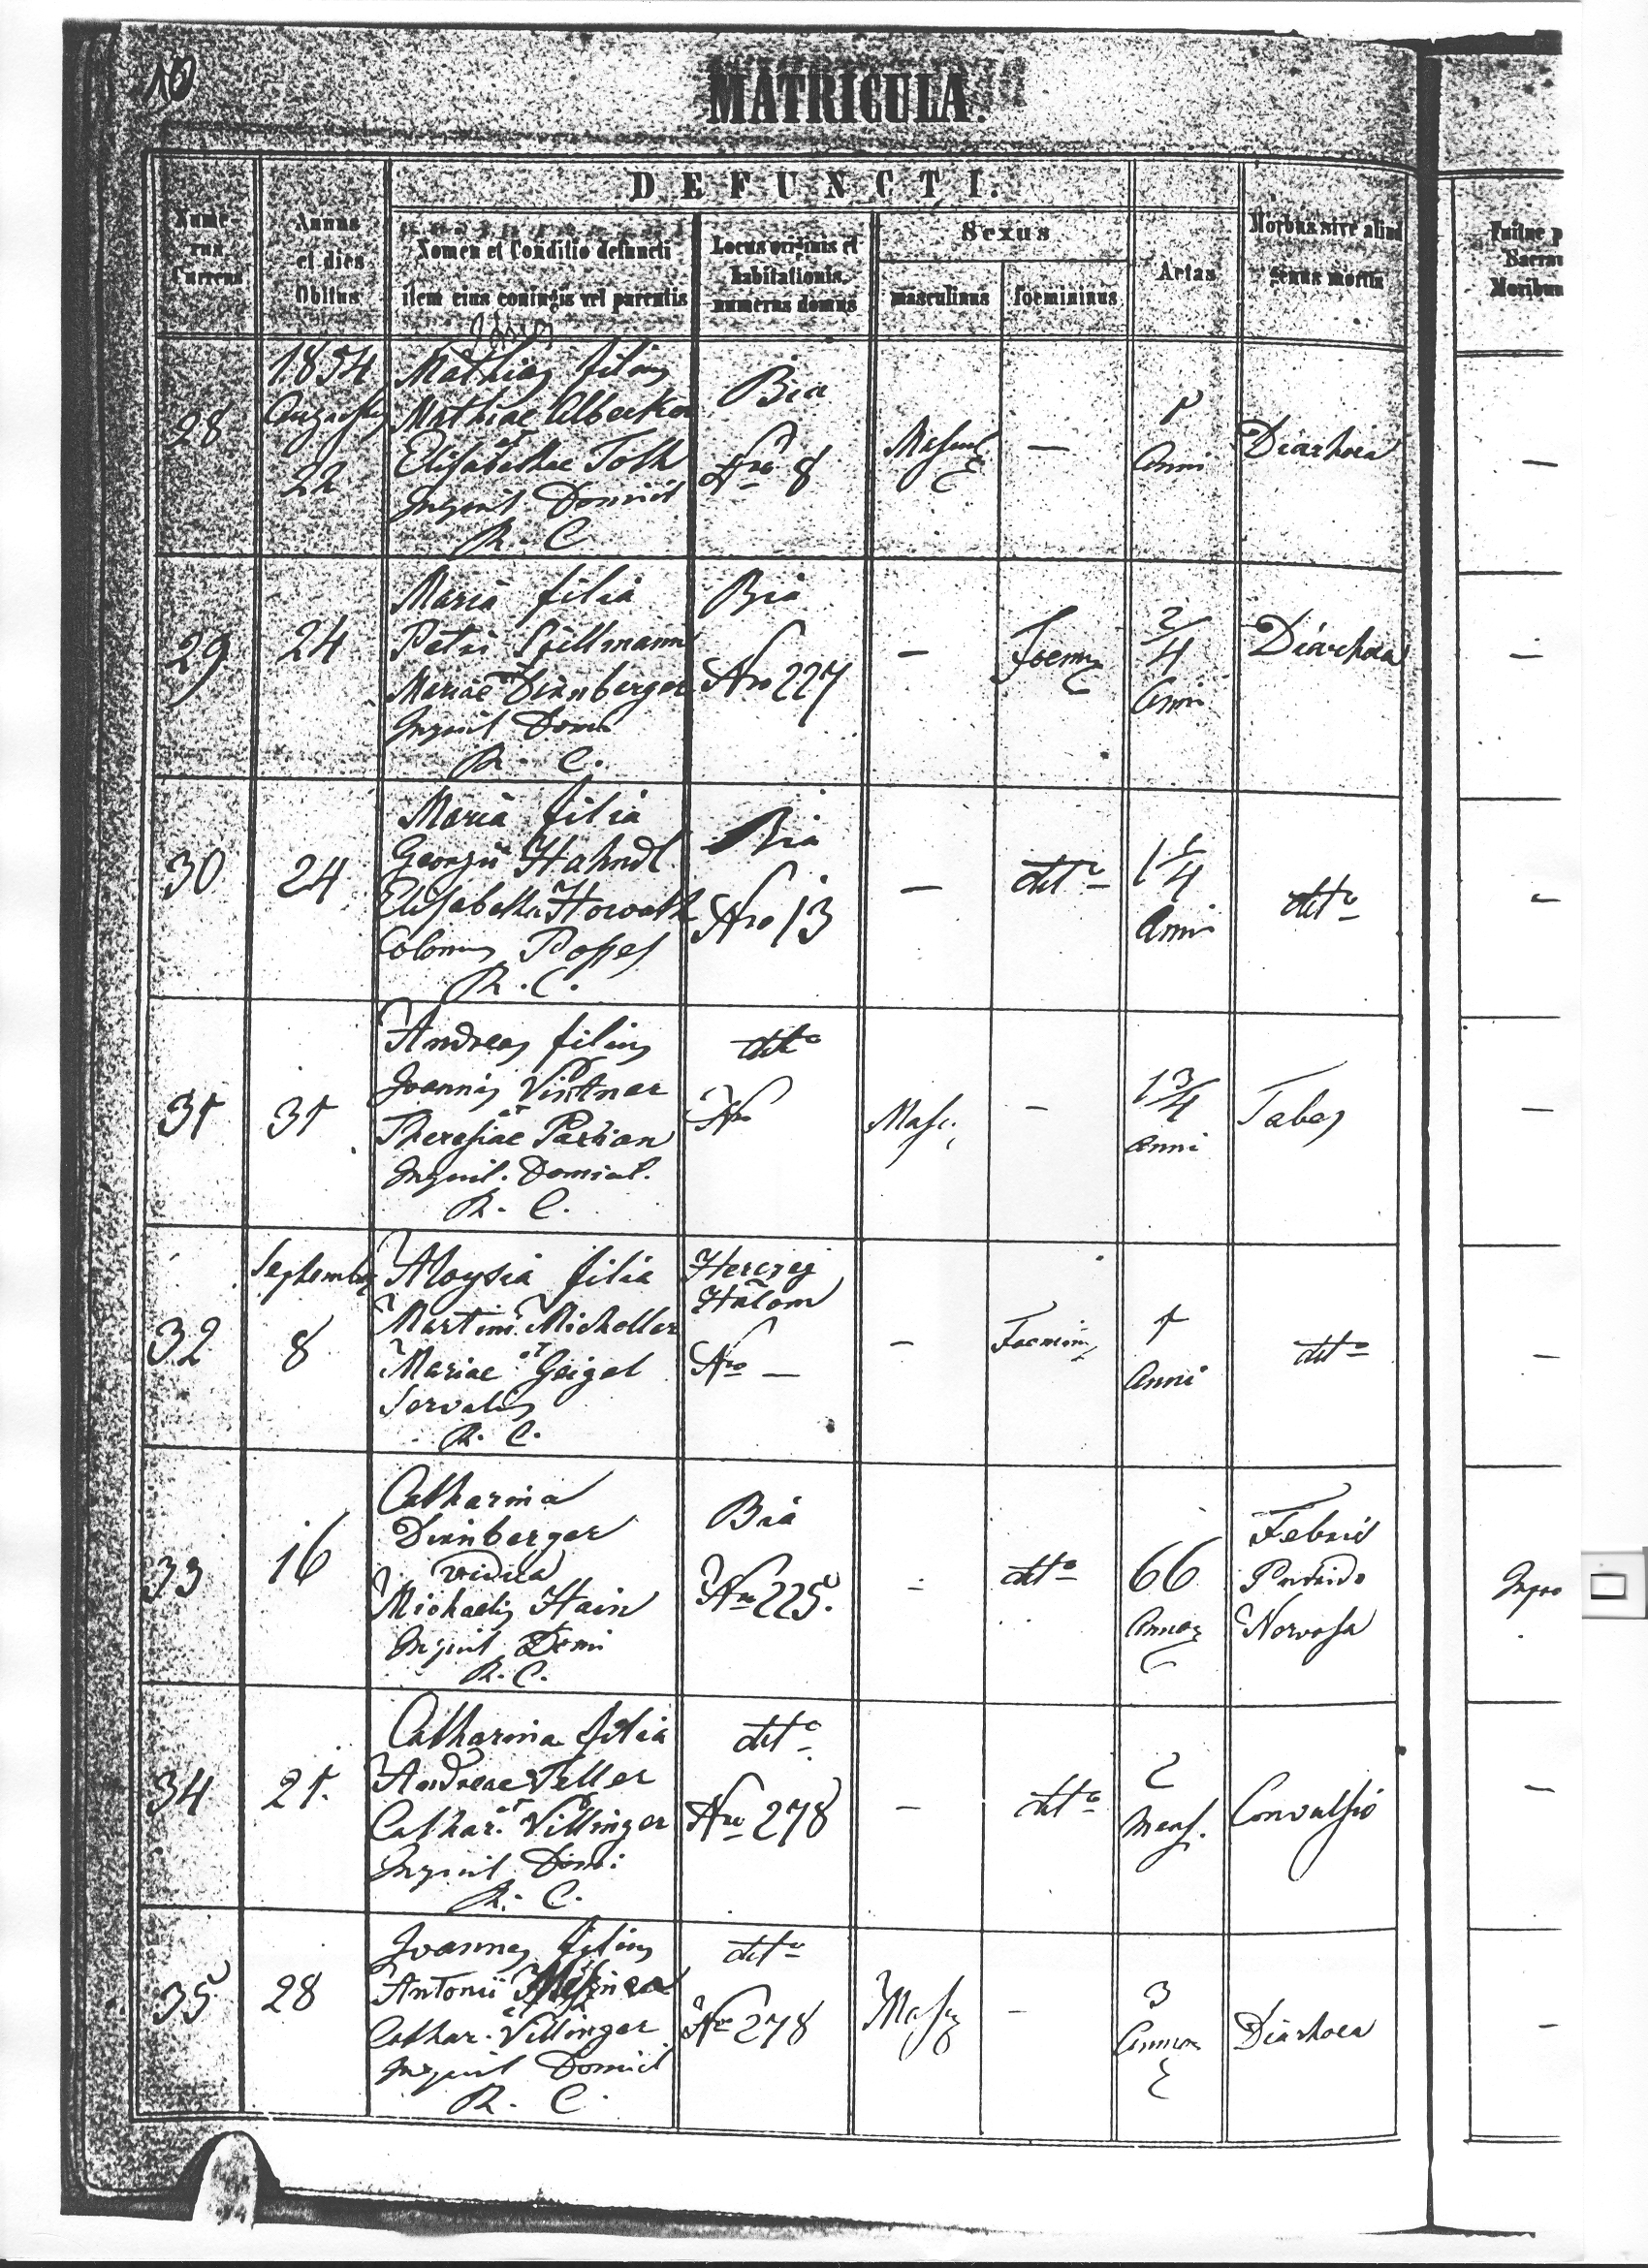 10
MATRICULA.
DEFUNCTI.
Nume-
rus
Currens
Annus
et dies
Obitus
Nomen et Conditio defuncti
item eius coniugis vel parentis
Locus originis et
habitationis,
numerus domus
Sexus
masculinus
foemininus
Aetas
Morbus sive aliud
genus mortis
28
1854
Augusty
22
Mathias filius
Mathiae Albecker
et
Elisabethae Toth
Inquil Domicil
R. C.
Bia
Nro 8
Mascul
—
1
Anni
Diarhoea
—
29
24
Maria filia
Petri Spillmann
et
Mariae Dirnberger
Inquil Domi
R. C.
Bia
Nro 227
—
Foem
2/4
Anni
Diarhoea
—
30
24
Maria filia
Georgii Hahndl
Elisabetha Horvath
Colonus Posses
R. C.
Bia
Nro 13
—
ditto
1 1/4
Anni
ditto
—
31
31
Andreas filius
Joannis Vintner
et
Theresiae Parkian
Inquil. Domicil.
R. C.
ditto
Nro
Masc.
—
1 3/4
Anni
Tabes
—
32
September
8
Aloysia filia
Martini Micheller
et
Mariae Geigel
Servalis
R. C.
Herczeg
Halom
Nro —
—
Foemin
1
Anni
ditto
—
33
16
Catharina
Dirnberger
vidua
Michaelis Hain
Inquil Domi
R. C.
Bia
Nro 225.
—
ditto
66
Annor
Febris
Putrido
Nervosa
34
21.
Catharina filia
Andreae Teller
et
Cathar. Villinger
Inquil Domi:
R. C.
ditto
Nro 278
—
ditto
2
Mens.
Convulsio
—
35
28
Joannes filius
Antonii
et
Cathar. Villinger
Inquil Domicil
R. C.
ditto
Nro 278
Masc
—
3
Annor
Diarhoea
—